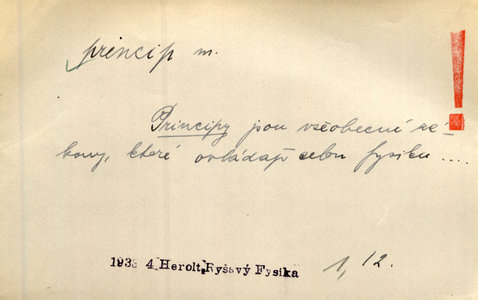 princip m.
!
Principy jsou všeobecné zá-
kony, které ovládají celou fysiku ....
1938 4 Herolt, Ryšavý Fysika
1, 12.